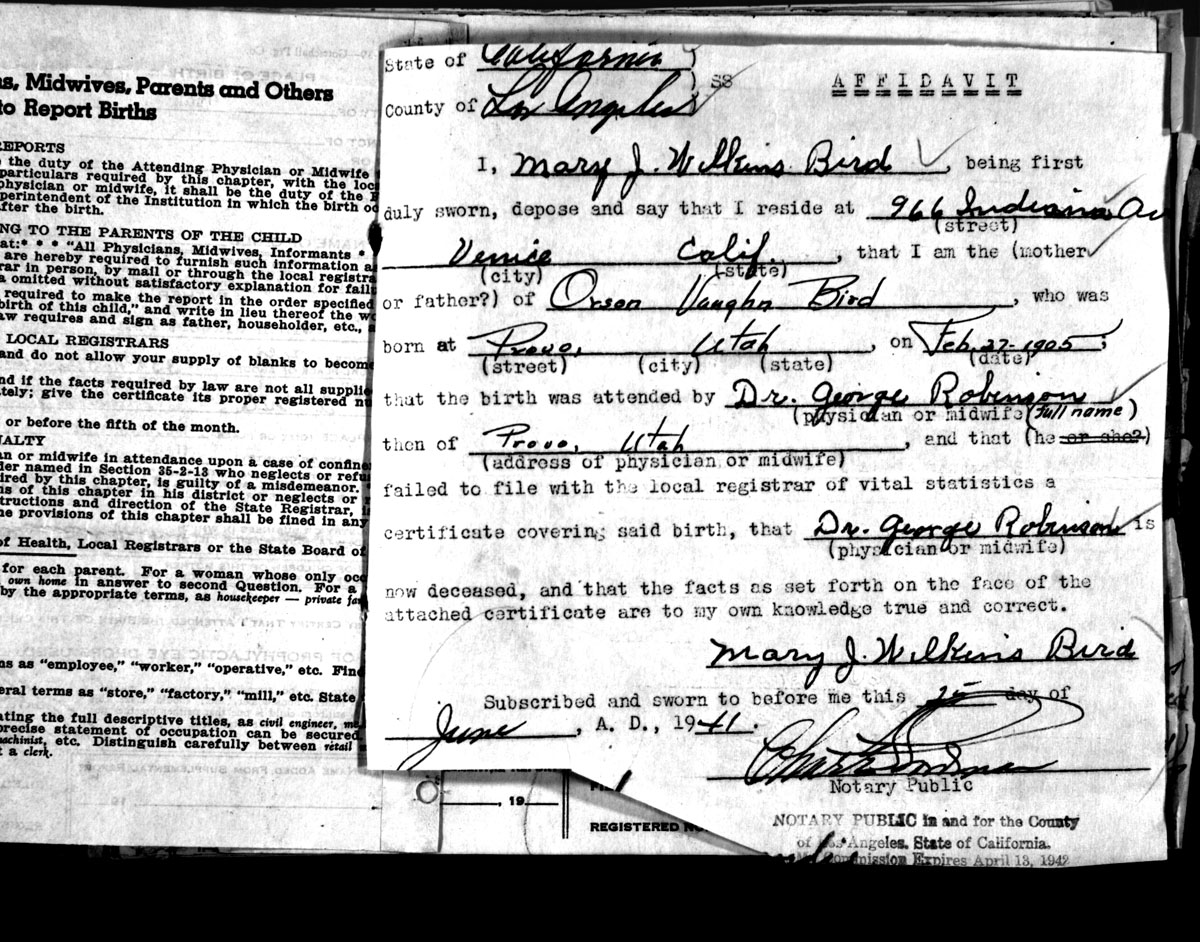 ns, Midwives, Parents and Others
to Report Births
REPORTS
the duty of the Attending Physician or Midwife
particulars required by this chapter, with the loc
physician or midwife, it shall be the duty of the
perintendent of the Institution in which the birth oc
fter the birth.
NG TO THE PARENTS OF THE CHILD
at:* * * "All Physicians, Midwives, Informants *
are hereby required to furnish such information a
rar in person, by mail or through the local registra
a omitted without satisfactory explanation for fail
required to make the report in the order specified
birth of this child," and write in lieu thereof the w
aw requires and sign as father, householder, etc.,
LOCAL REGISTRARS
and do not allow your supply of blanks to become
nd if the facts required by law are not all supplie
ately; give the certificate its proper registered nu
or before the fifth of the month.
NALTY
an or midwife in attendance upon a case of confine
der named in Section 35-2-13 who neglects or refu
ired by this chapter, is guilty of a misdemeanor.
ns of this chapter in his district or neglects or
tructions and direction of the State Registrar,
he provisions of this chapter shall be fined in any
of Health, Local Registrars or the State Board of
for each parent. For a woman whose only occ
own home in answer to second Question. For a
by the appropriate terms, as housekeeper — private fa
ns as "employee," "worker," "operative," etc. Fin
eral terms as "store," "factory," "mill," etc. State
ating the full descriptive titles, as civil engineer, m
precise statement of occupation can be secured.
machinist, etc. Distinguish carefully between retail
t a clerk.
, 19
REGISTERED NO.
State of California } SS
County of Los Angeles }
AFFIDAVIT
I, Mary J. Wilkins Bird, being first
duly sworn, depose and say that I reside at 966 Indiana Av
(street)
Venice Calif., that I am the (mother
(city) (state)
or father?) of Orson Vaughn Bird, who was
born at Provo, Utah, on Feb. 27-1905;
(street) (city) (state) (date)
that the birth was attended by Dr. George Robinson
(physician or midwife (full name)
then of Provo, Utah, and that (he or she?)
(address of physician or midwife)
failed to file with the local registrar of vital statistics a
certificate covering said birth, that Dr. George Robinson is
(physician or midwife)
now deceased, and that the facts as set forth on the face of the
attached certificate are to my own knowledge true and correct.
Mary J. Wilkins Bird
Subscribed and sworn to before me this day of
June, A. D., 1941.
Notary Public
NOTARY PUBLIC in and for the County
of Los Angeles, State of California.
My Commission Expires April 13, 1942